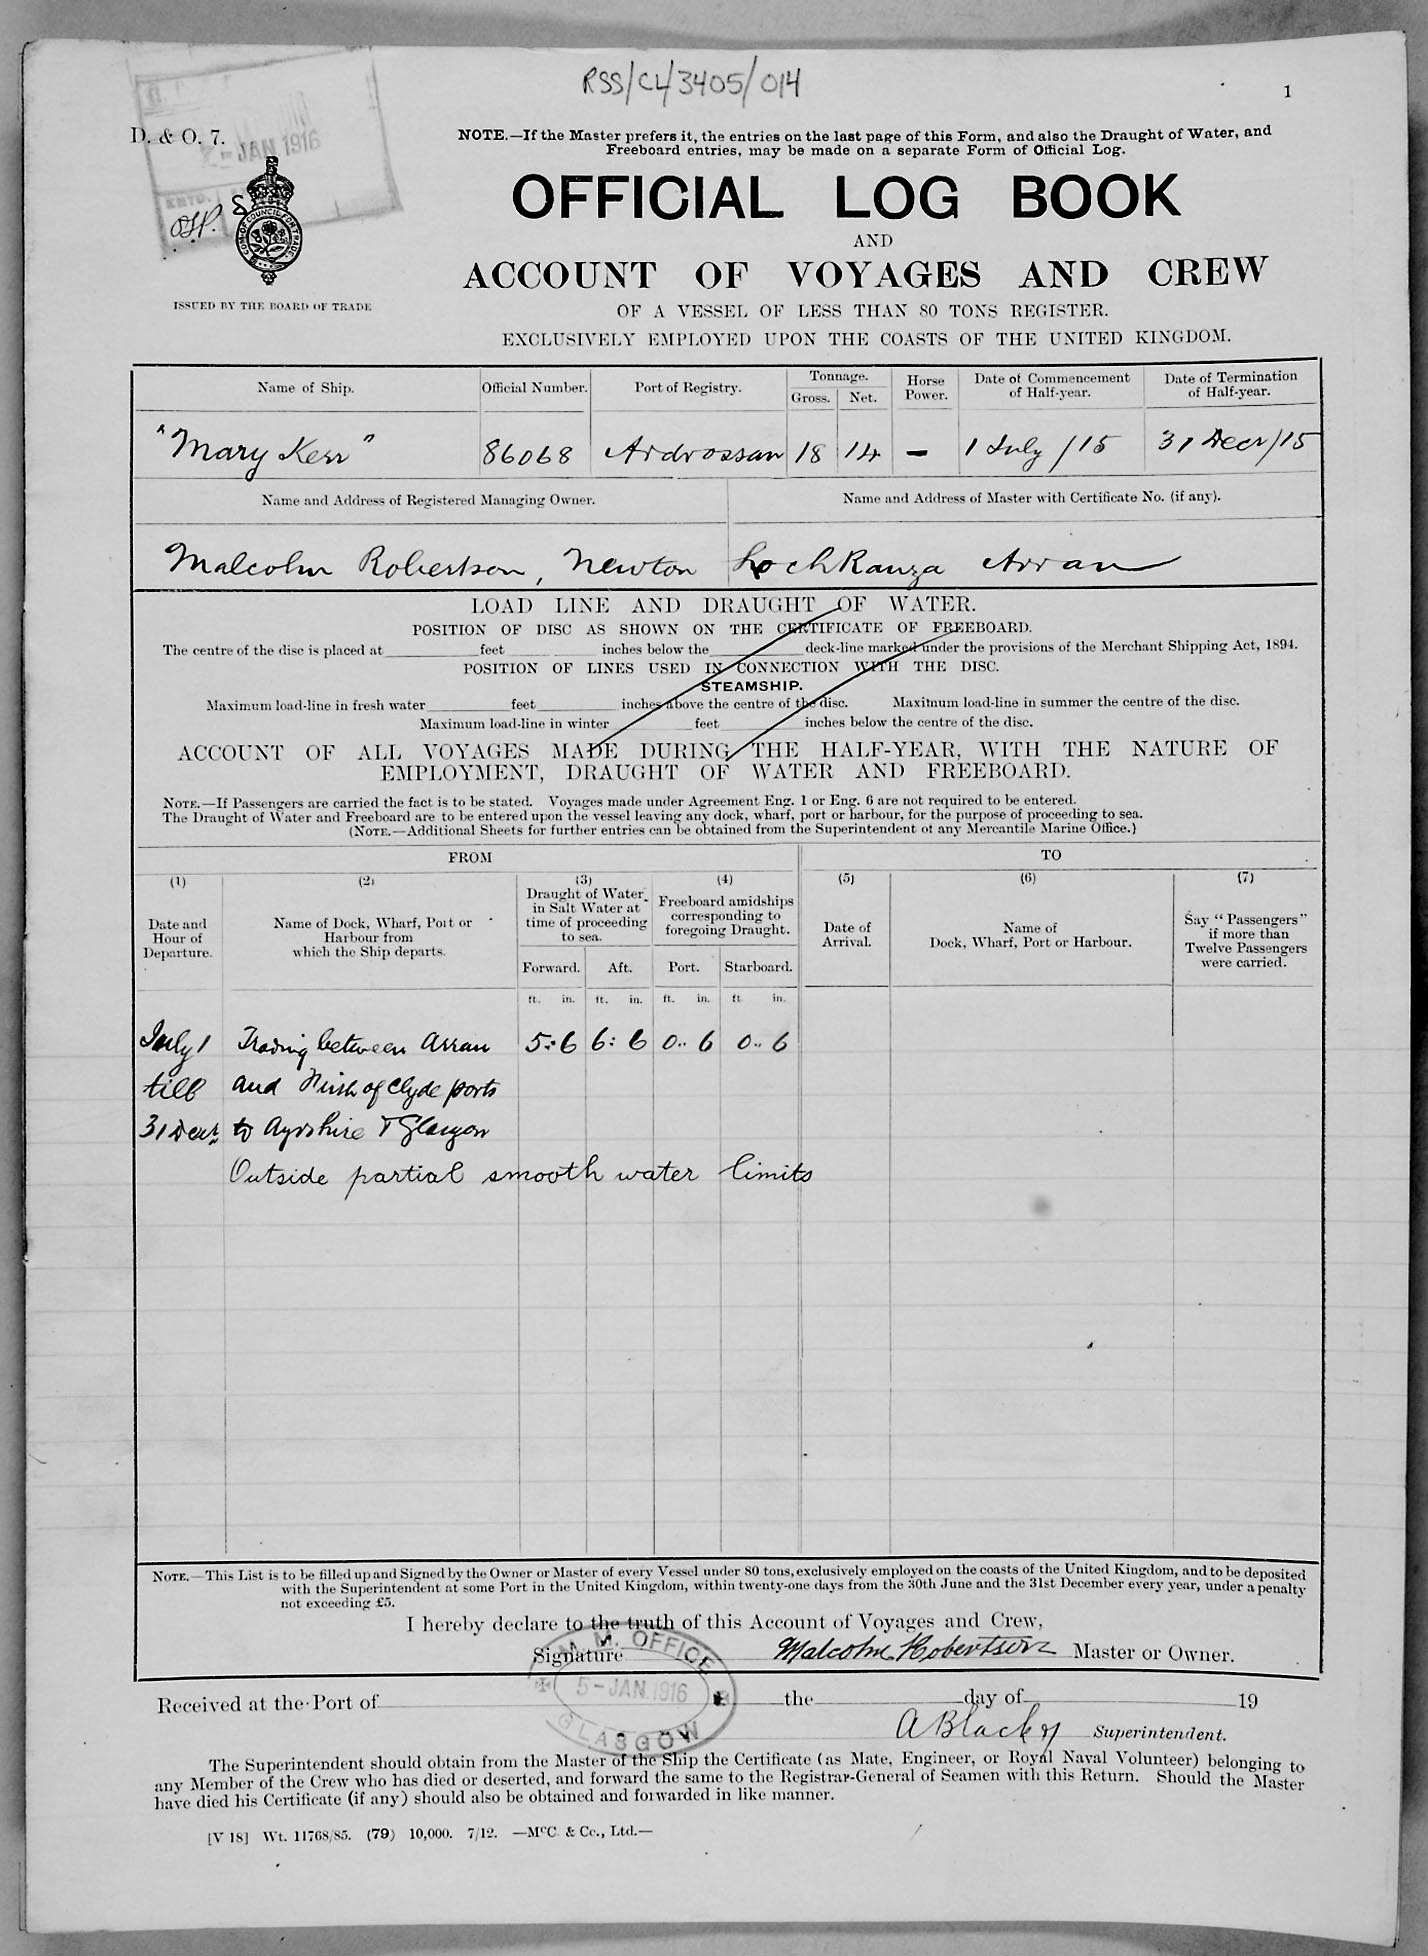 RSS/CL/3405/014
1
D. & O. 7.
JAN 1916
NOTE.—If the Master prefers it, the entries on the last page of this Form, and also the Draught of Water, and
Freeboard entries, may be made on a separate Form of Official Log.
OFFICIAL LOG BOOK
AND
ACCOUNT OF VOYAGES AND CREW
OF A VESSEL OF LESS THAN 80 TONS REGISTER.
EXCLUSIVELY EMPLOYED UPON THE COASTS OF THE UNITED KINGDOM.
8
COM. OF COUNCIL FOR TRADE
ISSUED BY THE BOARD OF TRADE
Name of Ship. Official Number. Port of Registry. Tonnage. Gross. Net. Horse Power. Date of Commencement of Half-year. Date of Termination of Half-year.
"Mary Kerr" 86068 Ardrossan 18 14 – 1 July /15 31 Decr /15
Name and Address of Registered Managing Owner. Name and Address of Master with Certificate No. (if any).
Malcolm Robertson, Newton LochRanza Arran
LOAD LINE AND DRAUGHT OF WATER.
POSITION OF DISC AS SHOWN ON THE CERTIFICATE OF FREEBOARD.
The centre of the disc is placed at feet inches below the deck-line marked under the provisions of the Merchant Shipping Act, 1894.
POSITION OF LINES USED IN CONNECTION WITH THE DISC.
STEAMSHIP.
Maximum load-line in fresh water feet inches above the centre of the disc. Maximum load-line in summer the centre of the disc.
Maximum load-line in winter feet inches below the centre of the disc.
ACCOUNT OF ALL VOYAGES MADE DURING THE HALF-YEAR, WITH THE NATURE OF
EMPLOYMENT, DRAUGHT OF WATER AND FREEBOARD.
NOTE.—If Passengers are carried the fact is to be stated. Voyages made under Agreement Eng. 1 or Eng. 6 are not required to be entered.
The Draught of Water and Freeboard are to be entered upon the vessel leaving any dock, wharf, port or harbour, for the purpose of proceeding to sea.
(NOTE.—Additional Sheets for further entries can be obtained from the Superintendent ot any Mercantile Marine Office.)
FROM TO
(1) (2) (3) (4) (5) (6) (7)
Date and Hour of Departure.
Name of Dock, Wharf, Port or Harbour from which the Ship departs.
Draught of Water in Salt Water at time of proceeding to sea.
Freeboard amidships corresponding to foregoing Draught.
Date of Arrival.
Name of Dock, Wharf, Port or Harbour.
Say "Passengers" if more than Twelve Passengers were carried.
Forward. Aft. Port. Starboard.
ft. in. ft. in. ft. in. ft in.
July 1 Trading between Arran 5:6 6:6 0..6 0..6
till and Firth of Clyde ports
31 Decr to Ayrshire & Glasgow
Outside partial smooth water limits
NOTE.—This List is to be filled up and Signed by the Owner or Master of every Vessel under 80 tons, exclusively employed on the coasts of the United Kingdom, and to be deposited
with the Superintendent at some Port in the United Kingdom, within twenty-one days from the 30th June and the 31st December every year, under a penalty
not exceeding £5.
I hereby declare to the truth of this Account of Voyages and Crew,
Signature Malcolm Robertson Master or Owner.
M. M. OFFICE
5-JAN.1916
GLASGOW
Received at the Port of the day of 19
Superintendent.
The Superintendent should obtain from the Master of the Ship the Certificate (as Mate, Engineer, or Royal Naval Volunteer) belonging to
any Member of the Crew who has died or deserted, and forward the same to the Registrar-General of Seamen with this Return. Should the Master
have died his Certificate (if any) should also be obtained and forwarded in like manner.
[V 18] Wt. 11768/85. (79) 10,000. 7/12. —McC. & Co., Ltd.—